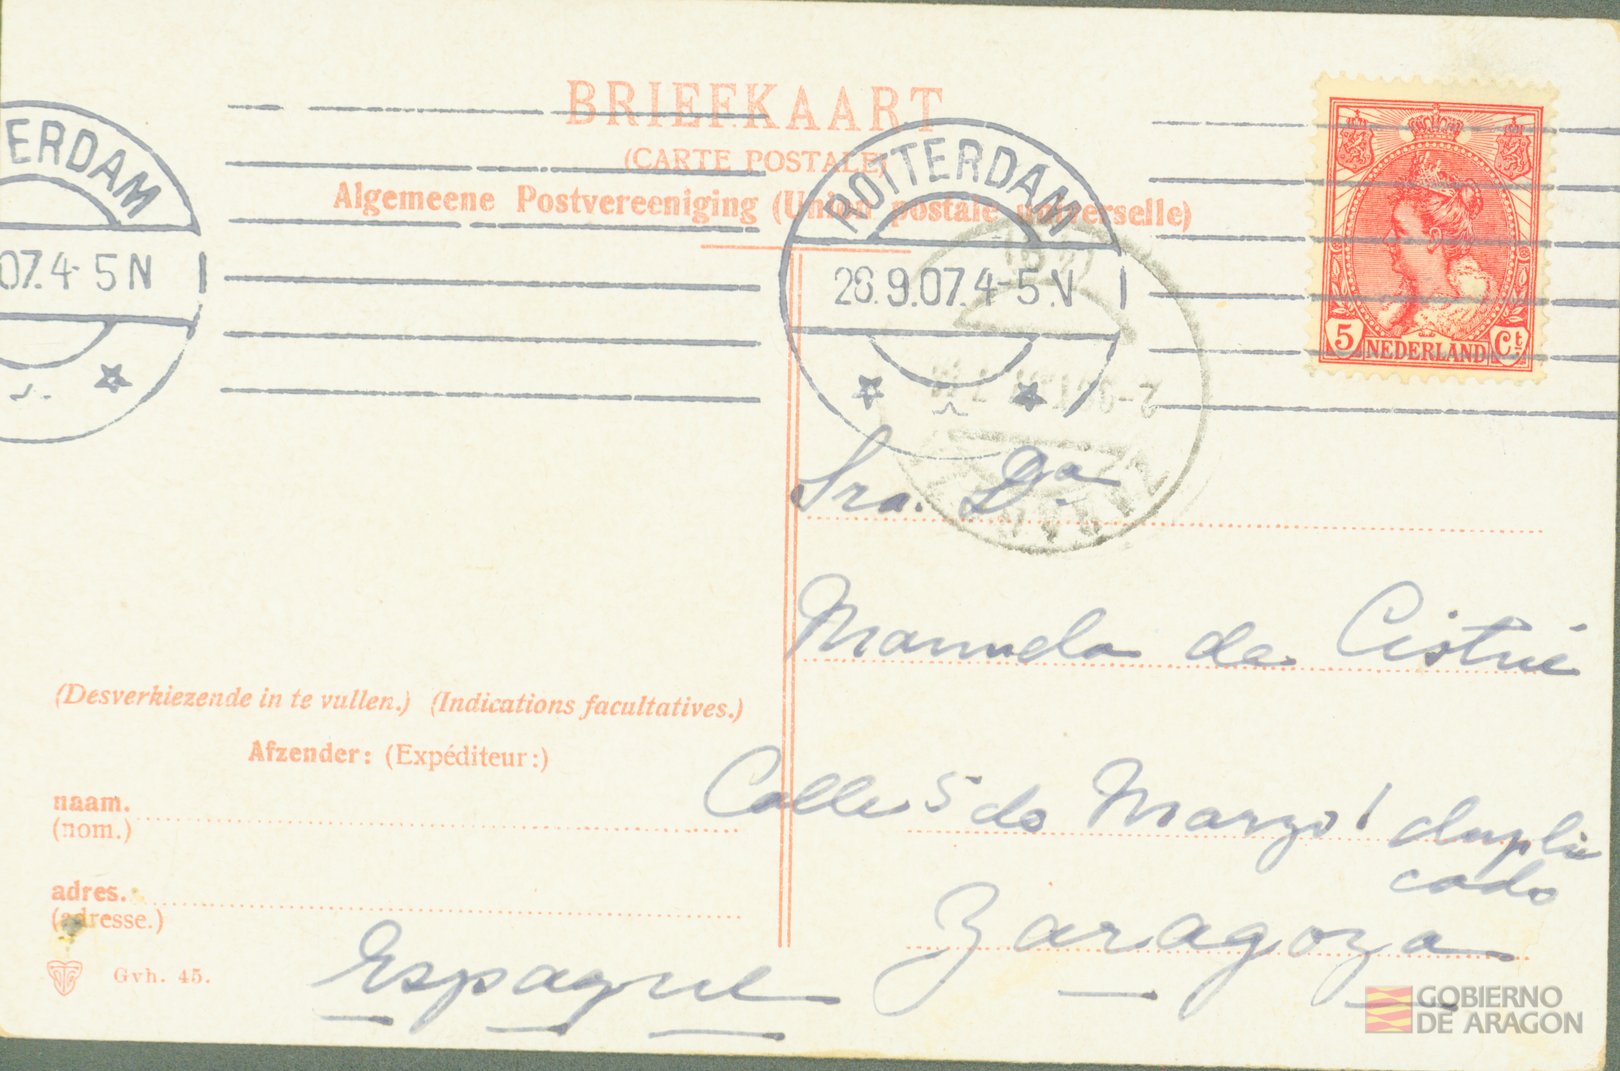 BRIEFKAART
(CARTE POSTALE)
Algemeene Postvereeniging (Union postale universelle)
ERDAM
07.4-5N
ROTTERDAM
28.9.07.4-5N
5 NEDERLAND Ct
Sra. Dª
Manuela de Cistué
Calle 5 de Marzo 1 dupli
cado
Zaragoza
Espagne
(Desverkiezende in te vullen.) (Indications facultatives.)
Afzender: (Expéditeur:)
naam.
(nom.)
adres.
(adresse.)
Gvh. 45.
GOBIERNO
DE ARAGON